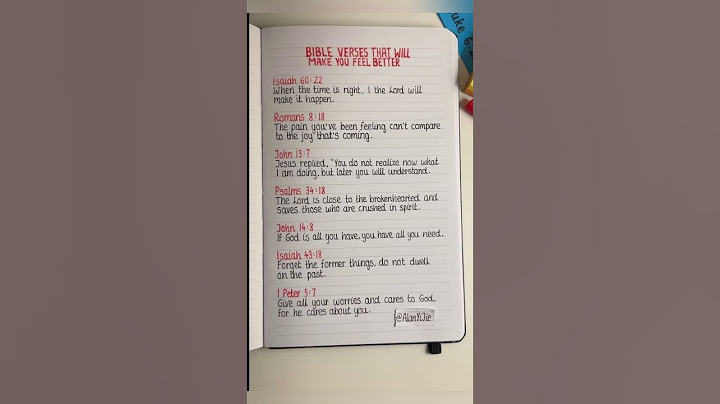 BIBLE VERSES THAT WILL
MAKE YOU FEEL BETTER
Isaiah 60:22
When the time is right, I the Lord will
make it happen.
Romans 8:18
The pain you've been feeling can't compare
to the joy that's coming.
John 13:7
Jesus replied, "You do not realize now what
I am doing, but later you will understand.
Psalms 34:18
The Lord is close to the brokenhearted and
saves those who are crushed in spirit.
John 14:8
If God is all you have, you have all you need.
Isaiah 43:18
Forget the former things, do not dwell
on the past.
1 Peter 5:7
Give all your worries and cares to God,
for he cares about you.
@AlanYiJie